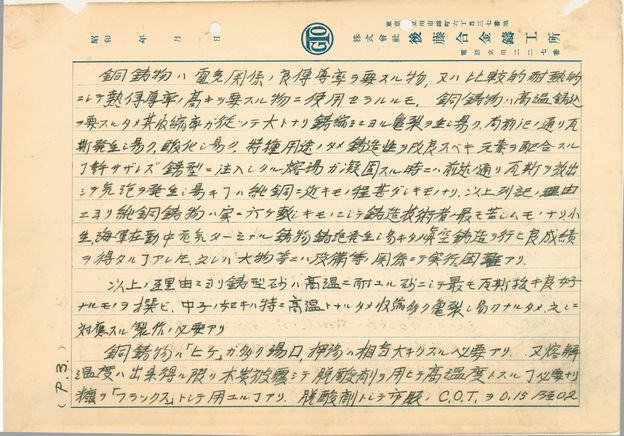 東京 立川市錦町六丁目三七番地
株式會社 後藤合金鑄工所
電話立川二二七番
昭和 年 月 日
GTO
銅鋳物ハ電気関係ノ良傳導率ヲ要スル物、又ハ比較的耐熱的
ニシテ熱傳導率ノ高キヲ要スル物ニ使用セラルルモ、銅鋳物ハ高温鋳込
ヲ要スルタメ其収縮率ガ従ツテ大トナリ鋳縮ニヨル亀裂ヲ生ジ易ク、尚前記ノ通リ瓦
斯発生シ易ク、酸化シ易ク、特種用途ノタメ鋳造性ヲ改良スベキ元素ヲ配合スル
了許サザレズ鋳型ニ注入シタル熔湯ガ凝固スル時ニ前述ノ通リ瓦斯ヲ放出
シテ気泡ヲ発生シ易キ了ハ純銅ニ近キモノ程甚ダシキモノナリ、以上列記ノ理由
ニヨリ純銅鋳物ハ実ニ六ケ敷シキモノニシテ鋳造技術者ノ最モ苦シムモノナリ小
生海軍在勤中電気ターミナル鋳物鋳泡発生シ易キタメ真空鋳造ヲ行ヒ良成績
ヲ得タル了アレ共、之レハ大物等ニハ設備等ノ関係ニテ実行困難アリ
以上ノ理由ニヨリ鋳型砂ハ高温ニ耐ユル砂ニシテ最モ瓦斯抜キ良好
ナルモノヲ撰ビ、中子ノ如キハ特ニ高温トナルタメ収縮多ク亀裂シ易クナルタメ、之レニ
対應スル製作ノ必要アリ
銅鋳物ハ「ヒケ」ガ多ク湯口、押湯ハ相当大キクスル必要アリ 又熔解
温度ハ出来得ル限リ木炭被覆シテ脱酸剤ヲ用ヒテ高温度トスル了必要ナリ
「フラックス」トシテ用ユル了アリ 脱酸剤トシテ市販ノC.O.T.ヲ0.15乃至0.2
(P.3.)